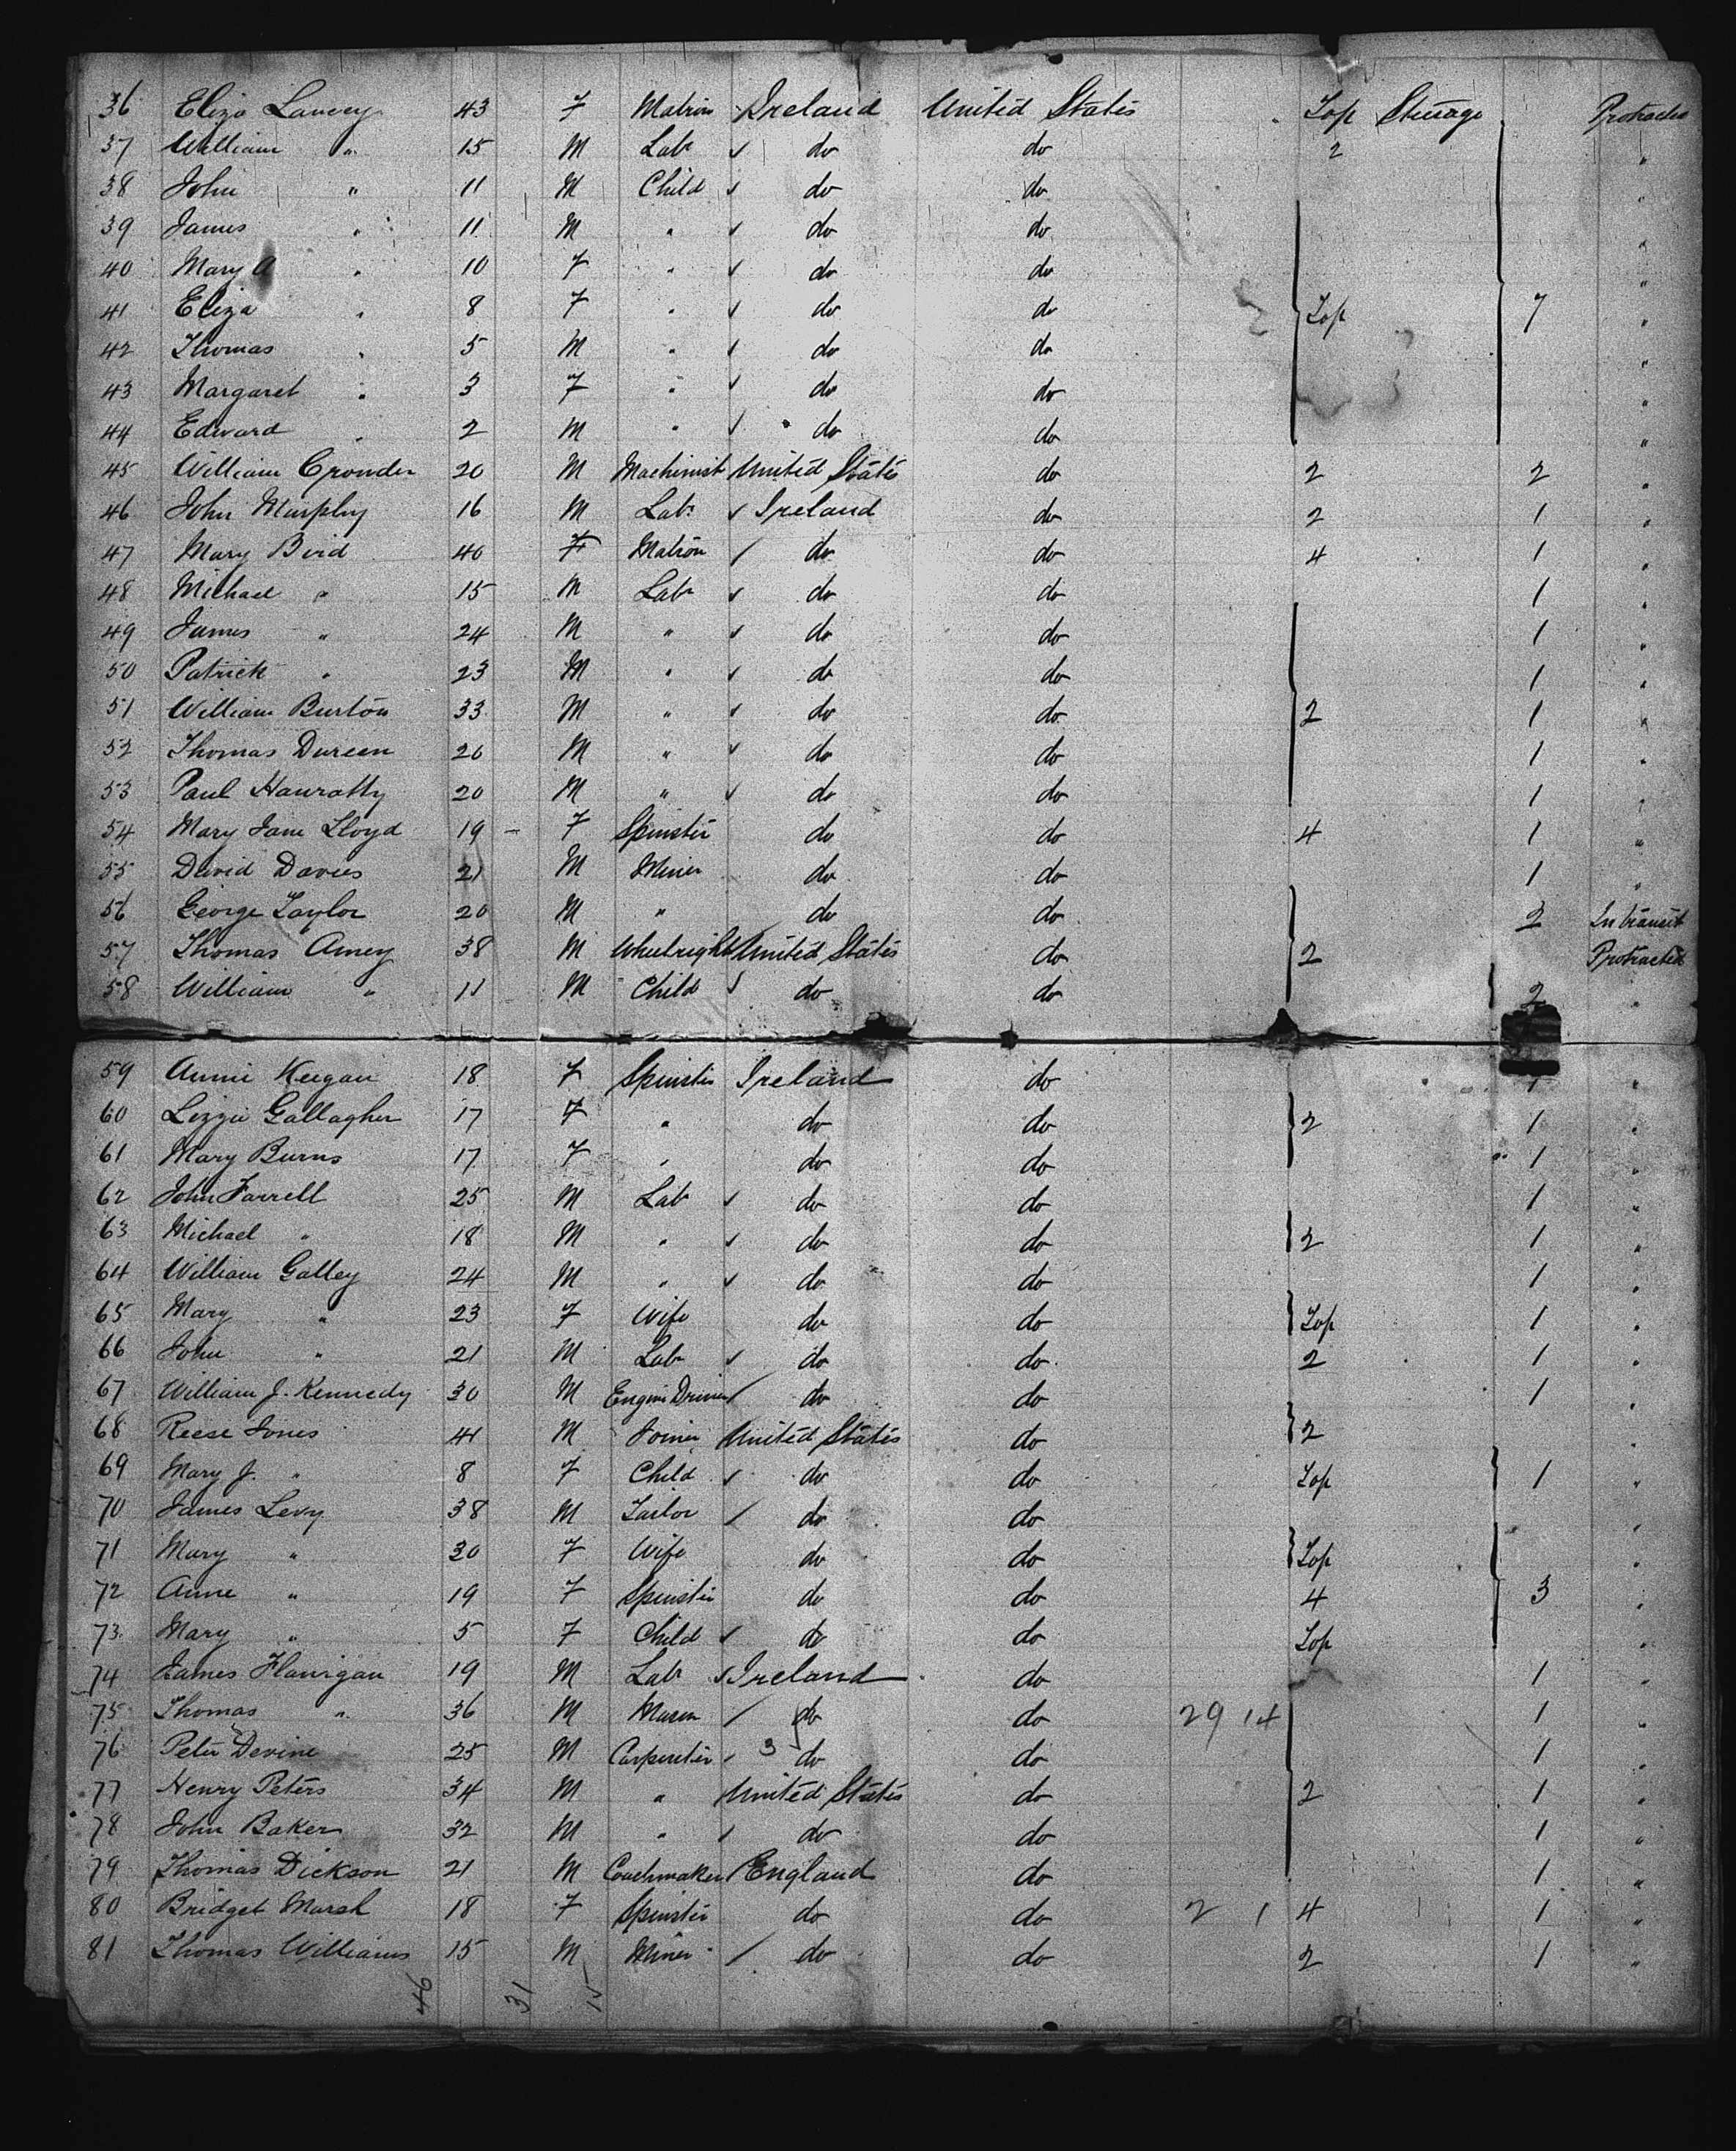 36 Eliza Lancey 43 F Matron Ireland United States Top Steerage Protracted
37 William " 15 M Lab ✓ do do 2 "
38 John " 11 M Child ✓ do do "
39 James " 11 M " ✓ do do "
40 Mary A " 10 F " ✓ do do "
41 Eliza " 8 F " ✓ do do Top 7 "
42 Thomas " 5 M " ✓ do do "
43 Margaret " 3 F " ✓ do do "
44 Edward " 2 M " ✓ do do "
45 William 20 M Machinist United States do 2 2 "
46 John Murphy 16 M Lab ✓ Ireland do 2 1 "
47 Mary Bird 40 F Matron / do do 4 1 "
48 Michael " 15 M Lab ✓ do do 1 "
49 James " 24 M " ✓ do do 1 "
50 Patrick " 23 M " ✓ do do 1 "
51 William Burton 33 M " ✓ do do 2 1 "
52 Thomas Dureen 20 M " ✓ do do 1 "
53 Paul Hanratty 20 M " ✓ do do 1 "
54 Mary Jane Lloyd 19 – F Spinster do do 4 1 "
55 David Davies 21 M Miner do do 1 "
56 George Taylor 20 M " do do 2 In transit
57 Thomas Amey 38 M Wheelright United States do 2 Protracted
58 William " 11 M Child ✓ do do 2 "
59 Annie Keegan 18 F Spinster Ireland do 1 "
60 Lizzie Gallagher 17 F " do do 2 1 "
61 Mary Burns 17 F " do do 1 "
62 John Farrell 25 M Lab ✓ do do 1 "
63 Michael " 18 M " ✓ do do 2 1 "
64 William Galley 24 M " ✓ do do 1 "
65 Mary " 23 F Wife do do Top 1 "
66 John " 21 M Lab ✓ do do 2 1 "
67 William J. Kennedy 30 M Engine Driver / do do 1 "
68 Reese Jones 41 M Joiner United States do 2 "
69 Mary J. " 8 F Child ✓ do do Top 1 "
70 James Levy 38 M Tailor / do do "
71 Mary " 30 F Wife do do Top "
72 Anne " 19 F Spinster do do 4 3 "
73 Mary " 5 F Child ✓ do do Top "
74 James Flanigan 19 M Lab ✓ Ireland do 1 "
75 Thomas " 36 M Mason / do do 29 14 1 "
76 Peter Devine 25 M Carpenter ✓ 3 do do 1 "
77 Henry Peters 34 M " United States do 2 1 "
78 John Baker 32 M " ✓ do do 1 "
79 Thomas Dickson 21 M Coachmaker / England do 1 "
80 Bridget Marsh 18 F Spinster do do 2 1 4 1 "
81 Thomas Williams 15 M Miner / do do 2 1 "
46 31 15